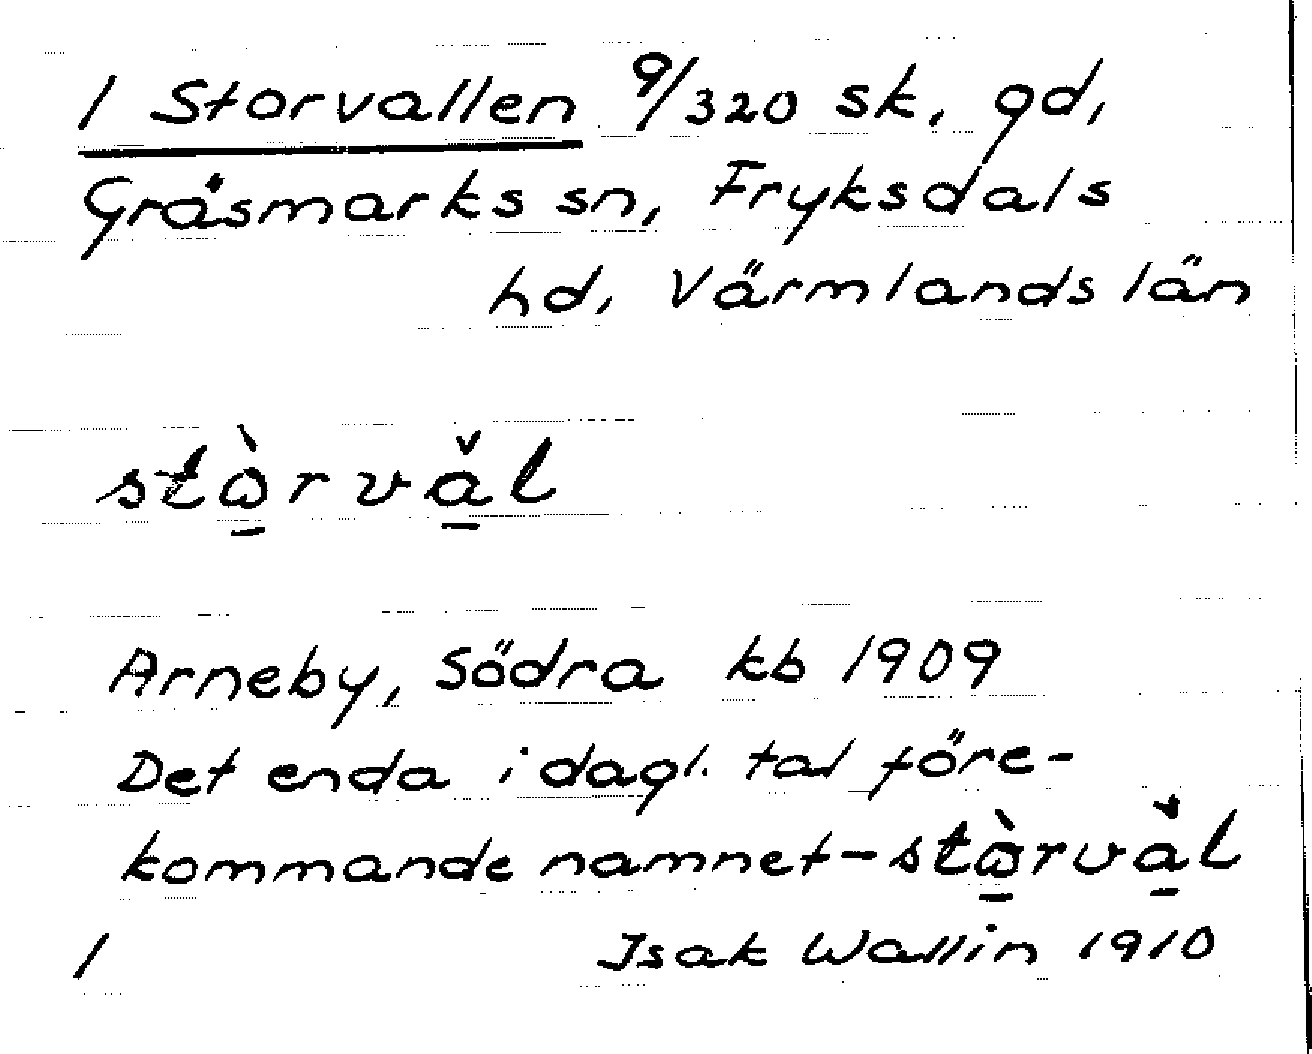 1 Storvallen 9/320 sk, gd,
Gräsmarks sn, Fryksdals
hd, Värmlands län
stὼrvǎl
Arneby, Södra kb 1909
Det enda i dagl. tal före-
kommande namnet - stὼrvǎl
1 Isak Wallin 1910